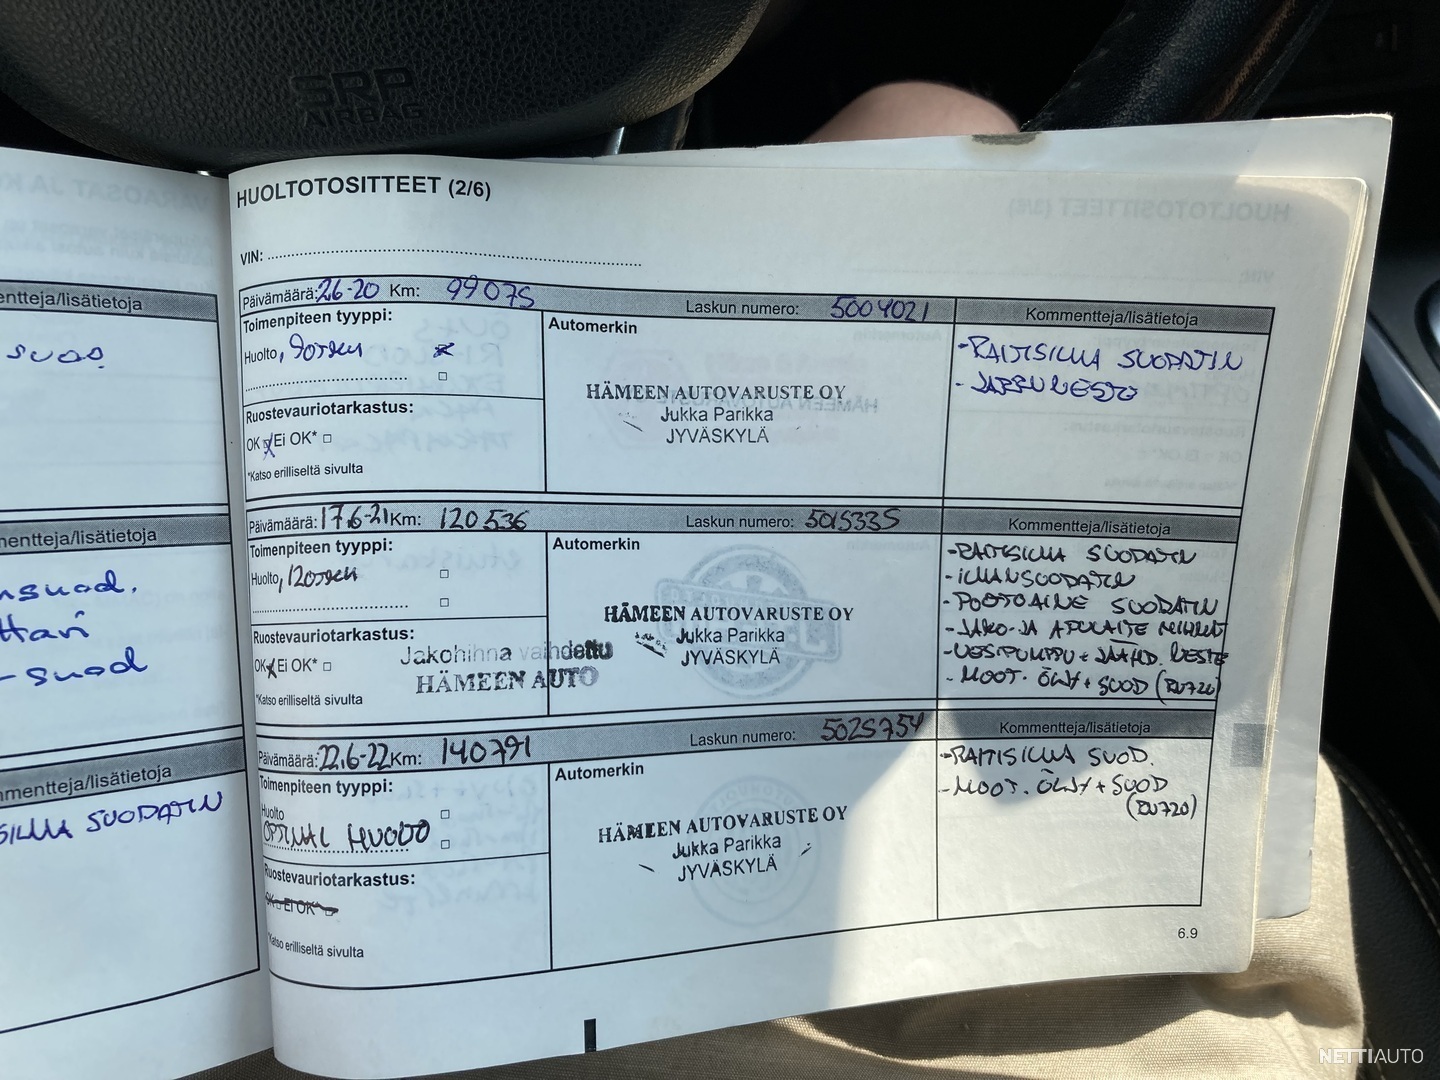 SRP
AIRBAG
HUOLTOTOSITTEET (2/6)
VIN:
Päivämäärä: 2.6-20 Km: 99 075
Laskun numero: 5004021
Kommentteja/lisätietoja
Toimenpiteen tyyppi:
Huolto, 90TKM
Automerkin
HÄMEEN AUTOVARUSTE OY
Jukka Parikka
JYVÄSKYLÄ
- RAITISILMA SUODATIN
- JARRUNESTE
Ruostevauriotarkastus:
OK Ei OK*
*Katso erilliseltä sivulta
Päivämäärä: 17.6-21 Km: 120 536
Laskun numero: 5015335
Kommentteja/lisätietoja
Toimenpiteen tyyppi:
Huolto, 120TKM
Automerkin
HÄMEEN AUTOVARUSTE OY
Jukka Parikka
JYVÄSKYLÄ
- RAITISILMA SUODATIN
- ILMANSUODATIN
- POLTOAINE SUODATIN
- JAKO-JA APULAITE HIHNAT
- VESIPUMPPU + JÄÄHD. NESTE
- MOOT. ÖLJY + SUOD (RN720)
Ruostevauriotarkastus:
OK Ei OK*
*Katso erilliseltä sivulta
Jakohihna vaihdettu
HÄMEEN AUTO
Päivämäärä: 22.6-22 Km: 140791
Laskun numero: 5025754
Kommentteja/lisätietoja
Toimenpiteen tyyppi:
Huolto
OPTIMAL HUOLTO
Automerkin
HÄMEEN AUTOVARUSTE OY
Jukka Parikka
JYVÄSKYLÄ
- RAITISILMA SUOD.
- MOOT. ÖLJY + SUOD
(RN720)
Ruostevauriotarkastus:
OK Ei OK*
*Katso erilliseltä sivulta
6.9
entteja/lisätietoja
suod.
mentteja/lisätietoja
nsuod.
ttari
-suod
mmentteja/lisätietoja
SILMA SUODATIN
NETTIAUTO